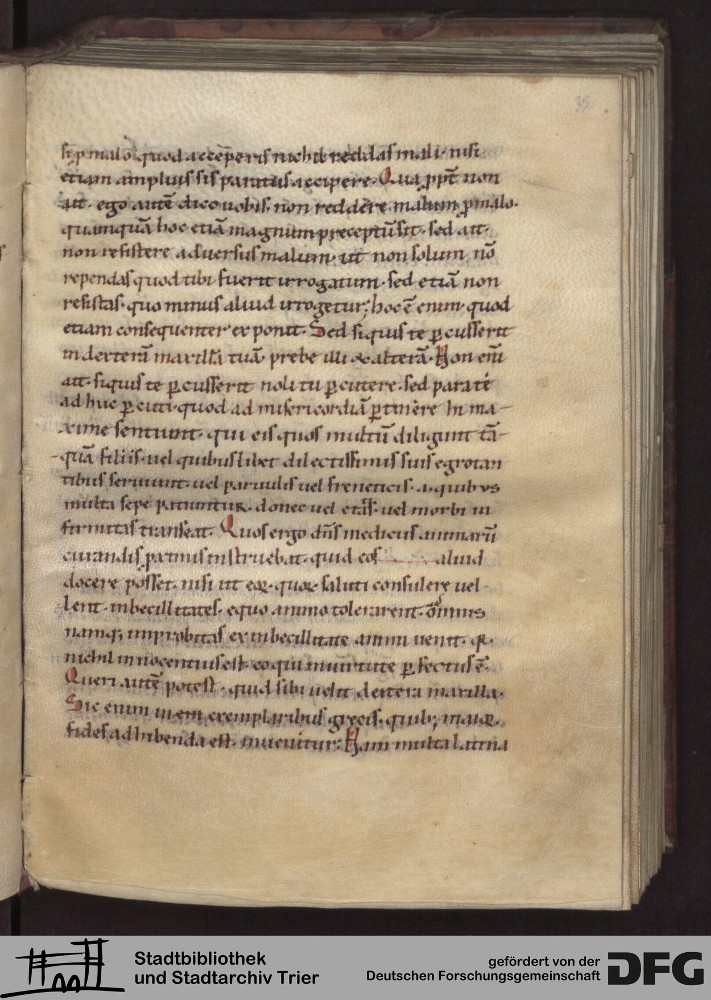 35
si p malo quod acceperis nichil reddas mali. nisi
etiam amplius sis paratus accipere. Qua ppt non
ait. ego autē dico uobis. non reddere malum p malo.
quamquā hoc etiā magnum preceptū sit. sed ait.
non resistere aduersus malum. ut non solum nō
rependas quod tibi fuerit irrogatum. sed etiā non
resistas. quo minus aliud irrogetur; hoc ē enim quod
etiam consequenter exponit. Sed siquis te pcusserit
in dexterā maxillā tuā. prebe illi & alterā. Non enī
ait. siquis te pcusserit noli tu pcutere. sed parate
ad huc pcuti. quod ad misericordiā ptinere hi ma-
xime sentiunt. qui eis quos multū diligunt tā-
quā filiis. uel quibuslibet dilectissimis suis egrotan
tibus seruiunt. uel paruulis uel freneticis. a quibus
multa sepe patiuntur. donec uel etas. uel morbi in
firmitas transeat. Quos ergo dn̄s medicus animarū
curandis pximis instruebat. quid eos aliud
docere posset. nisi ut eoꝝ. quoꝝ saluti consulere uel
lent. inbecillitates. equo animo tolerarent. Omnis
namq; improbitas ex inbecillitate animi uenit. q̄
nichil innocentius est. eo qui in uirtute pfectus ē.
Queri autē potest. quid sibi uelit dextera maxilla.
Sic enim in exemplaribus grecis. quib; maior
fides adhibenda est. inuenitur. Nam multa latina
Stadtbibliothek
und Stadtarchiv Trier
gefördert von der
Deutschen Forschungsgemeinschaft
DFG